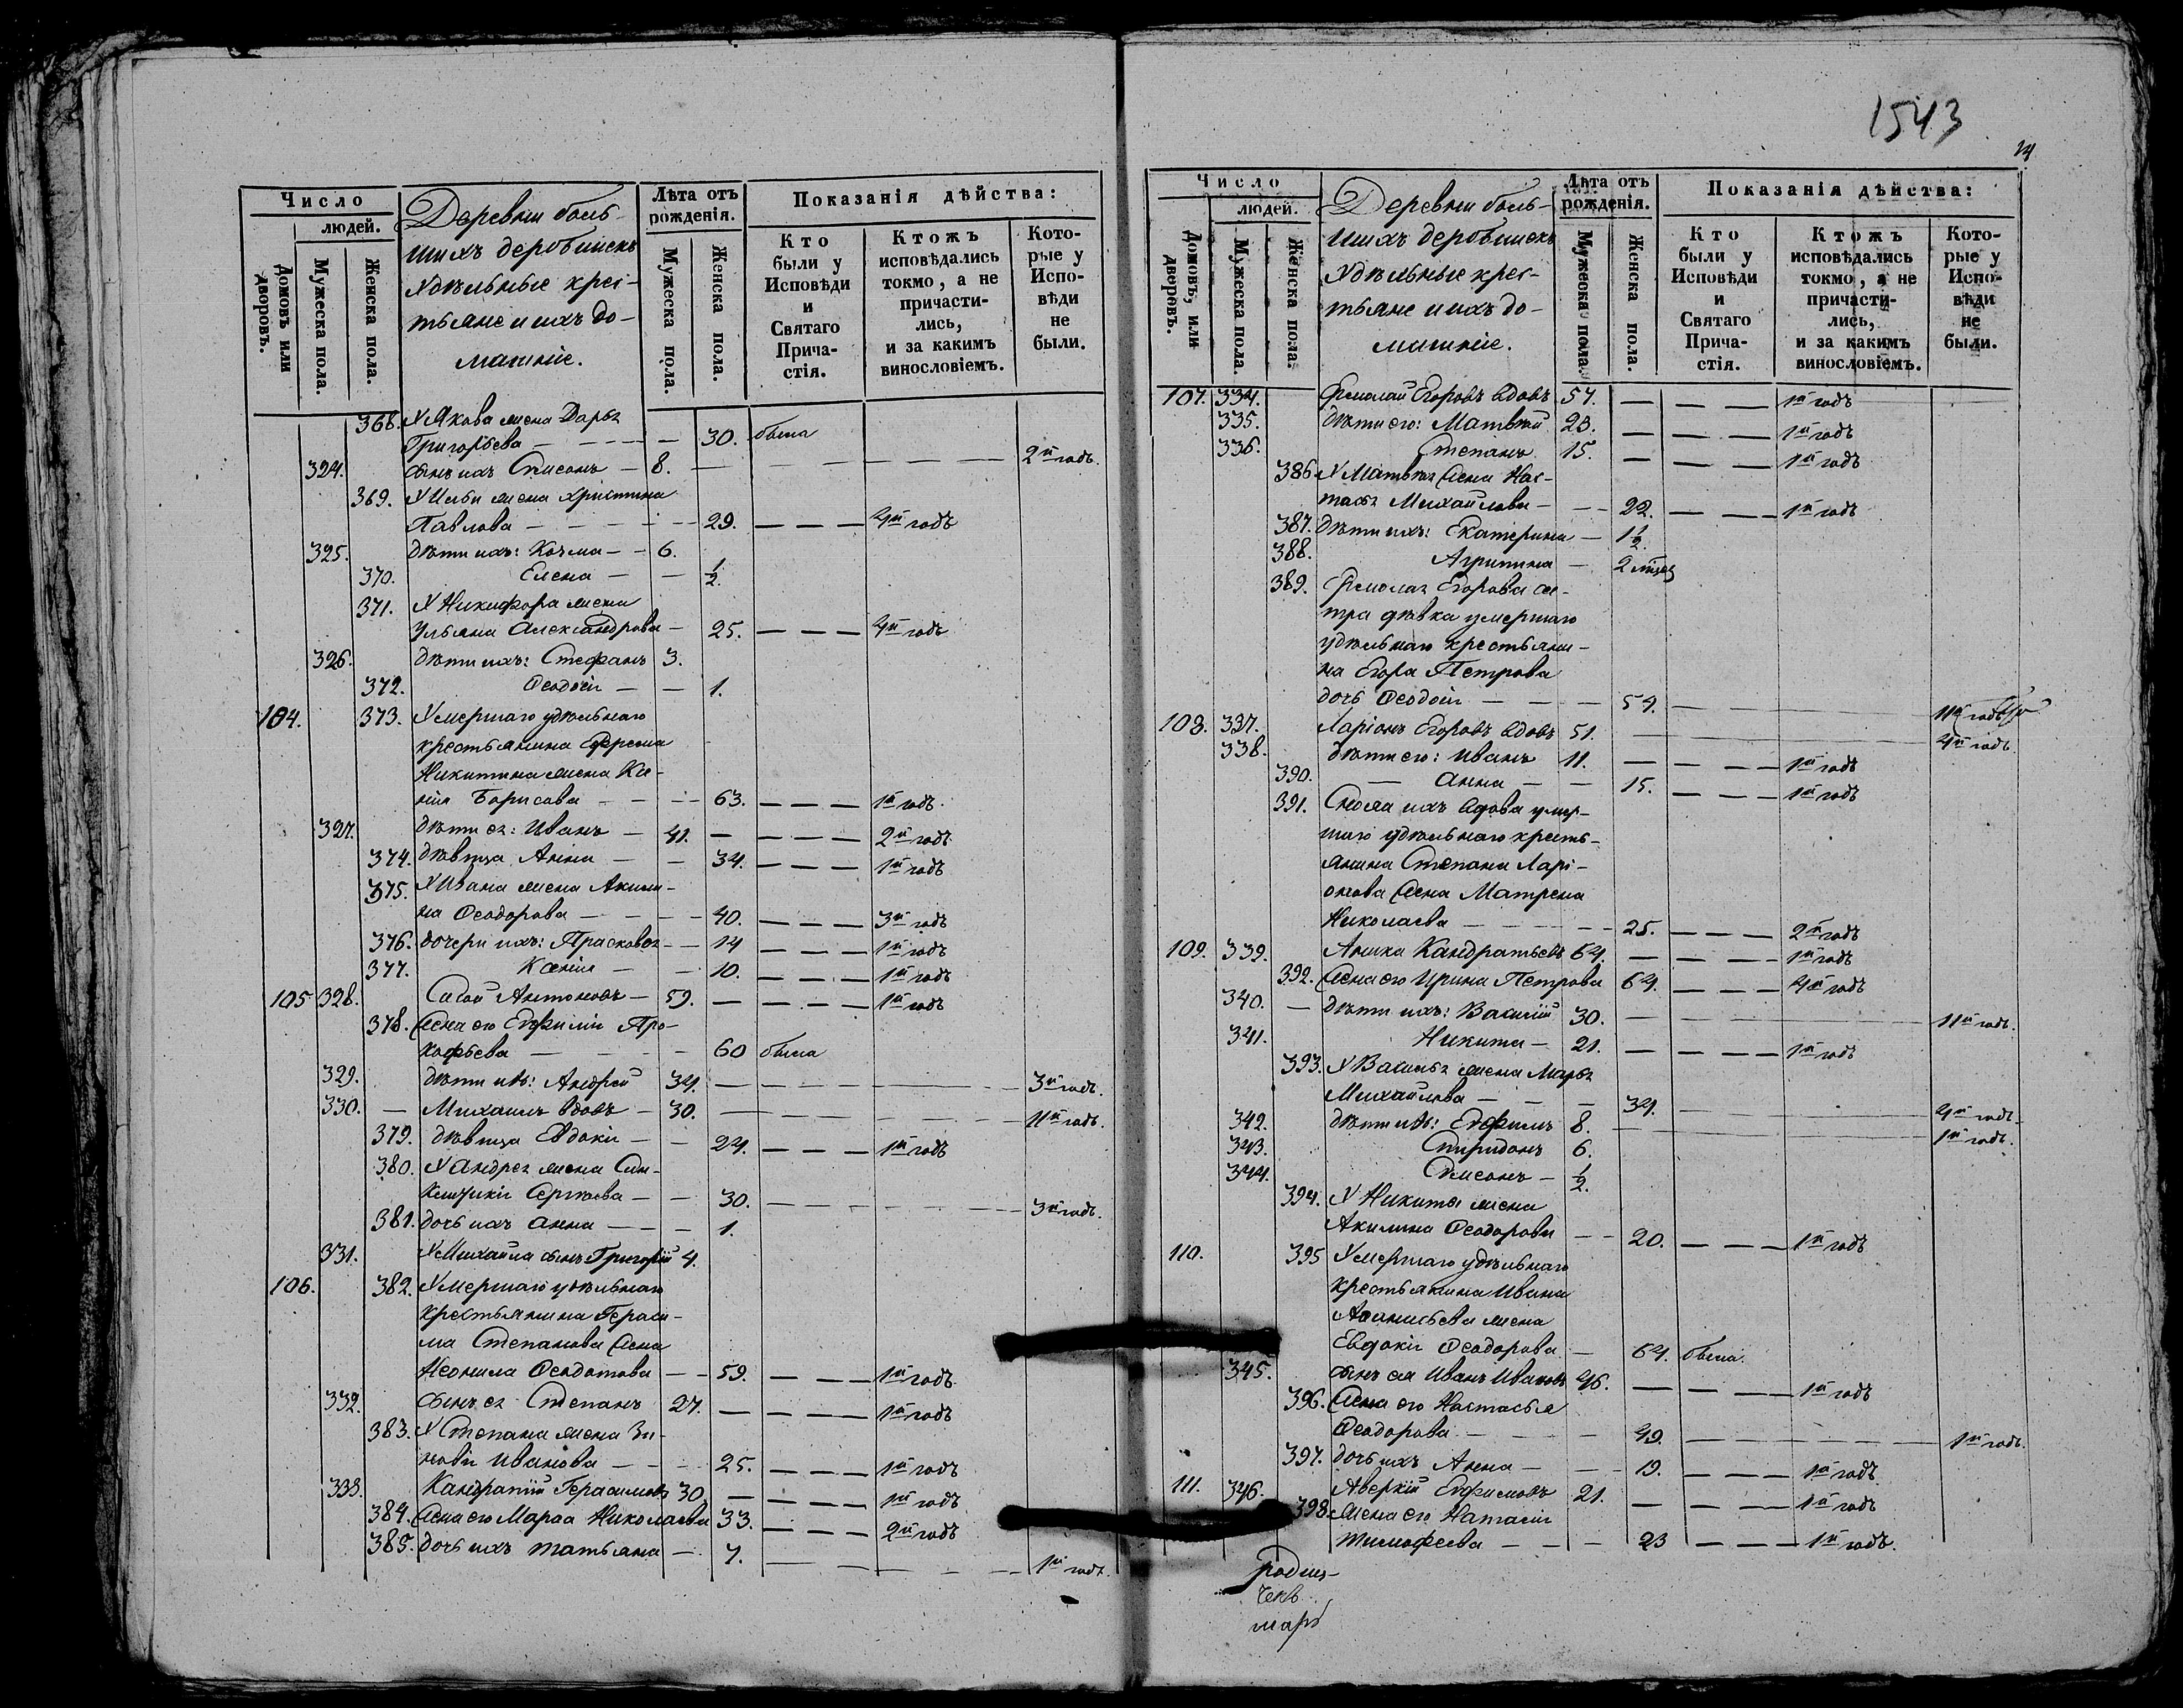 Число
людей.
Домовъ или дворовъ.
Мужеска пола.
Женска пола.
Деревни боль-
шихъ деровищекъ
удѣльные крес-
тьяне и ихъ до-
машніе.
Лѣта отъ рожденія.
Мужеска пола.
Женска пола.
Показанія дѣйства:
Кто были у Исповѣди и Святаго Прича-стія.
Ктожъ исповѣдались токмо, а не причасти-лись, и за какимъ винословіемъ.
Кото-рые у Испо-вѣди не были.
368. У Якова жена Дарья
Григорьева — 30. была
324. сынъ ихъ Симеонъ — 8. — 2й годъ.
369. У Ильи жена Христина
Павлова — 29. — 4й годъ
325. дѣти ихъ: Козма — 6.
370. Елена — ½
371. У Никифора жена
Ульяна Александрова — 25. — 4й годъ
326. дѣти ихъ: Стефанъ 3.
372. Ѳеодосія — 1.
104. 373. Умершаго удѣльнаго
крестьянина Ефрема
Никитина жена Ксе-
нія Борисова — 63. — 1й годъ.
327. дѣти ея: Иванъ — 41. — 2й годъ
374. дѣвица Анна — 34. — 1й годъ
375. У Ивана жена Акили-
на Ѳеодорова — 40. — 3й годъ
376. дочери ихъ: Прасковья — 14 — 1й годъ
377. Ксенія — 10. — 1й годъ
105 328. Савой Антоновъ — 59. — 1й годъ
378. Жена его Евфимія Про-
кофьева — 60 была
329. дѣти ихъ: Андрей 34. — 3й годъ.
330. — Михаилъ вдовъ — 30. — 11й годъ.
379. дѣвица Евдокія — 24. — 1й годъ
380. У Андрея жена Син-
клитикія Сергѣева — 30. — 3й годъ.
381. дочь ихъ Анна — 1.
331. У Михаила сынъ Григорій 4.
106. 382. Умершаго удѣльнаго
крестьянина Гераси-
ма Степанова Жена
Неонила Ѳеодотова — 59. — 1й годъ
332. сынъ ея Степанъ 27. — 1й годъ
383. У Степана жена Зи-
новія Иванова — 25. — 1й годъ
333. Кандратій Герасимовъ 30 — 1й годъ
384. Жена его Марѳа Николаева 33. — 2й годъ
385. дочь ихъ Татьяна — 7. — 1й годъ.
1543
Число
людей.
Домовъ, или дверовъ.
Мужеска пола.
Женска пола.
Деревни боль-
шихъ деровищекъ
Удѣльные крес-
тьяне и ихъ до-
машніе.
Лѣта отъ рожденія.
Мужеска пола.
Женска пола.
Показанія дѣйства:
Кто были у Исповѣди и Святаго Прича-стія.
Ктожъ исповѣдались токмо, а не причасти-лись, и за какимъ винословіемъ.
Кото-рые у Испо-вѣди не были.
107. 334. Ермолай Егоровъ вдовъ 57. — 1й годъ
335. дѣти его: Матвѣй 23. — 1й годъ
336. Степанъ 15. — 1й годъ
386 У Матвѣя Жена Нас-
тасья Михайлова — 22. — 1й годъ
387. дѣти ихъ: Екатерина — 1½
388. Агрипина — 2 мѣсяц
389. Ермолая Егорова сес-
тра дѣвка умершаго
удѣльнаго крестьяни-
на Егора Петрова
дочь Ѳеодосія — 54. — 11й годъ
108. 337. Ларіонъ Егоровъ вдовъ 51. — 4й годъ.
338. дѣти его: Иванъ 11. — 1й годъ
390. — Анна — 15. — 1й годъ
391. Сноха ихъ вдова умер-
шаго удѣльнаго кресть-
янина Степана Ларі-
онова Жена Матрена
Николаева — 25. — 2й годъ
109. 339. Аника Кандратьевъ 64. — 1й годъ
392. Жена его Ирина Петрова 64. — 4й годъ
340. — дѣти ихъ: Василій 30. — 11й годъ.
341. Никита — 21. — 1й годъ
393. У Василья жена Марья
Михайлова — 34. — 4й годъ.
342. дѣти ихъ: Евфимъ 8. — 1й годъ.
343. Спиридонъ 6.
344. Симеонъ — ½.
394. У Никиты жена
Акилина Ѳеодорова — 20. — 1й годъ
110. 395 Умершаго удѣльнаго
крестьянина Ивана
жена
Евдокія Ѳеодорова — 64. была
345. сынъ ея Иванъ Ивановъ 46. — 1й годъ
396. Жена его Настасья
Ѳеодорова — 49. — 1й годъ.
397. дочь ихъ Анна — 19. — 1й годъ
111. 346. Аверкій Евфимовъ 21. — 1й годъ
398. Жена его Наталія
Тимофеева — 23 — 1й годъ.